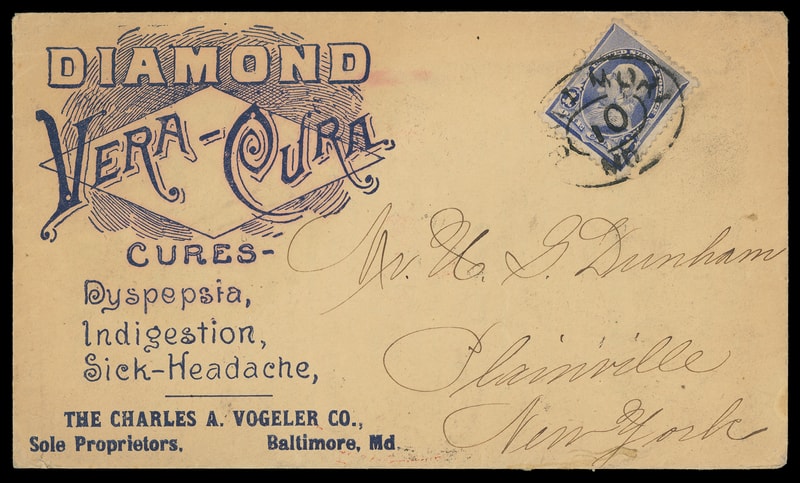 DIAMOND
VERA-CURA
CURES-
Dyspepsia,
Indigestion,
Sick-Headache,
THE CHARLES A. VOGELER CO.,
Sole Proprietors. Baltimore, Md
10
Mr. U. S. Dunham
Plainville
New York